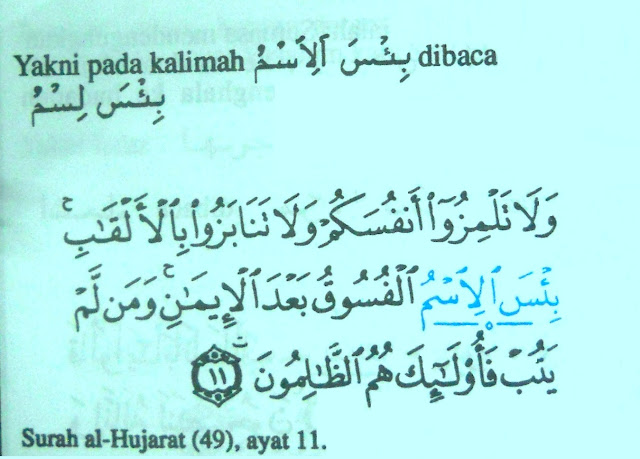 Yakni pada kalimah بِئْسَ ٱلِٱسْمُ dibaca
بِئْسَ لِسْمُ
وَلَا تَلْمِزُوٓا۟ أَنفُسَكُمْ وَلَا تَنَابَزُوا۟ بِٱلْأَلْقَـٰبِ ۖ
بِئْسَ ٱلِٱسْمُ ٱلْفُسُوقُ بَعْدَ ٱلْإِيمَـٰنِ ۚ وَمَن لَّمْ
يَتُبْ فَأُو۟لَـٰٓئِكَ هُمُ ٱلظَّـٰلِمُونَ ١١
Surah al-Hujarat (49), ayat 11.